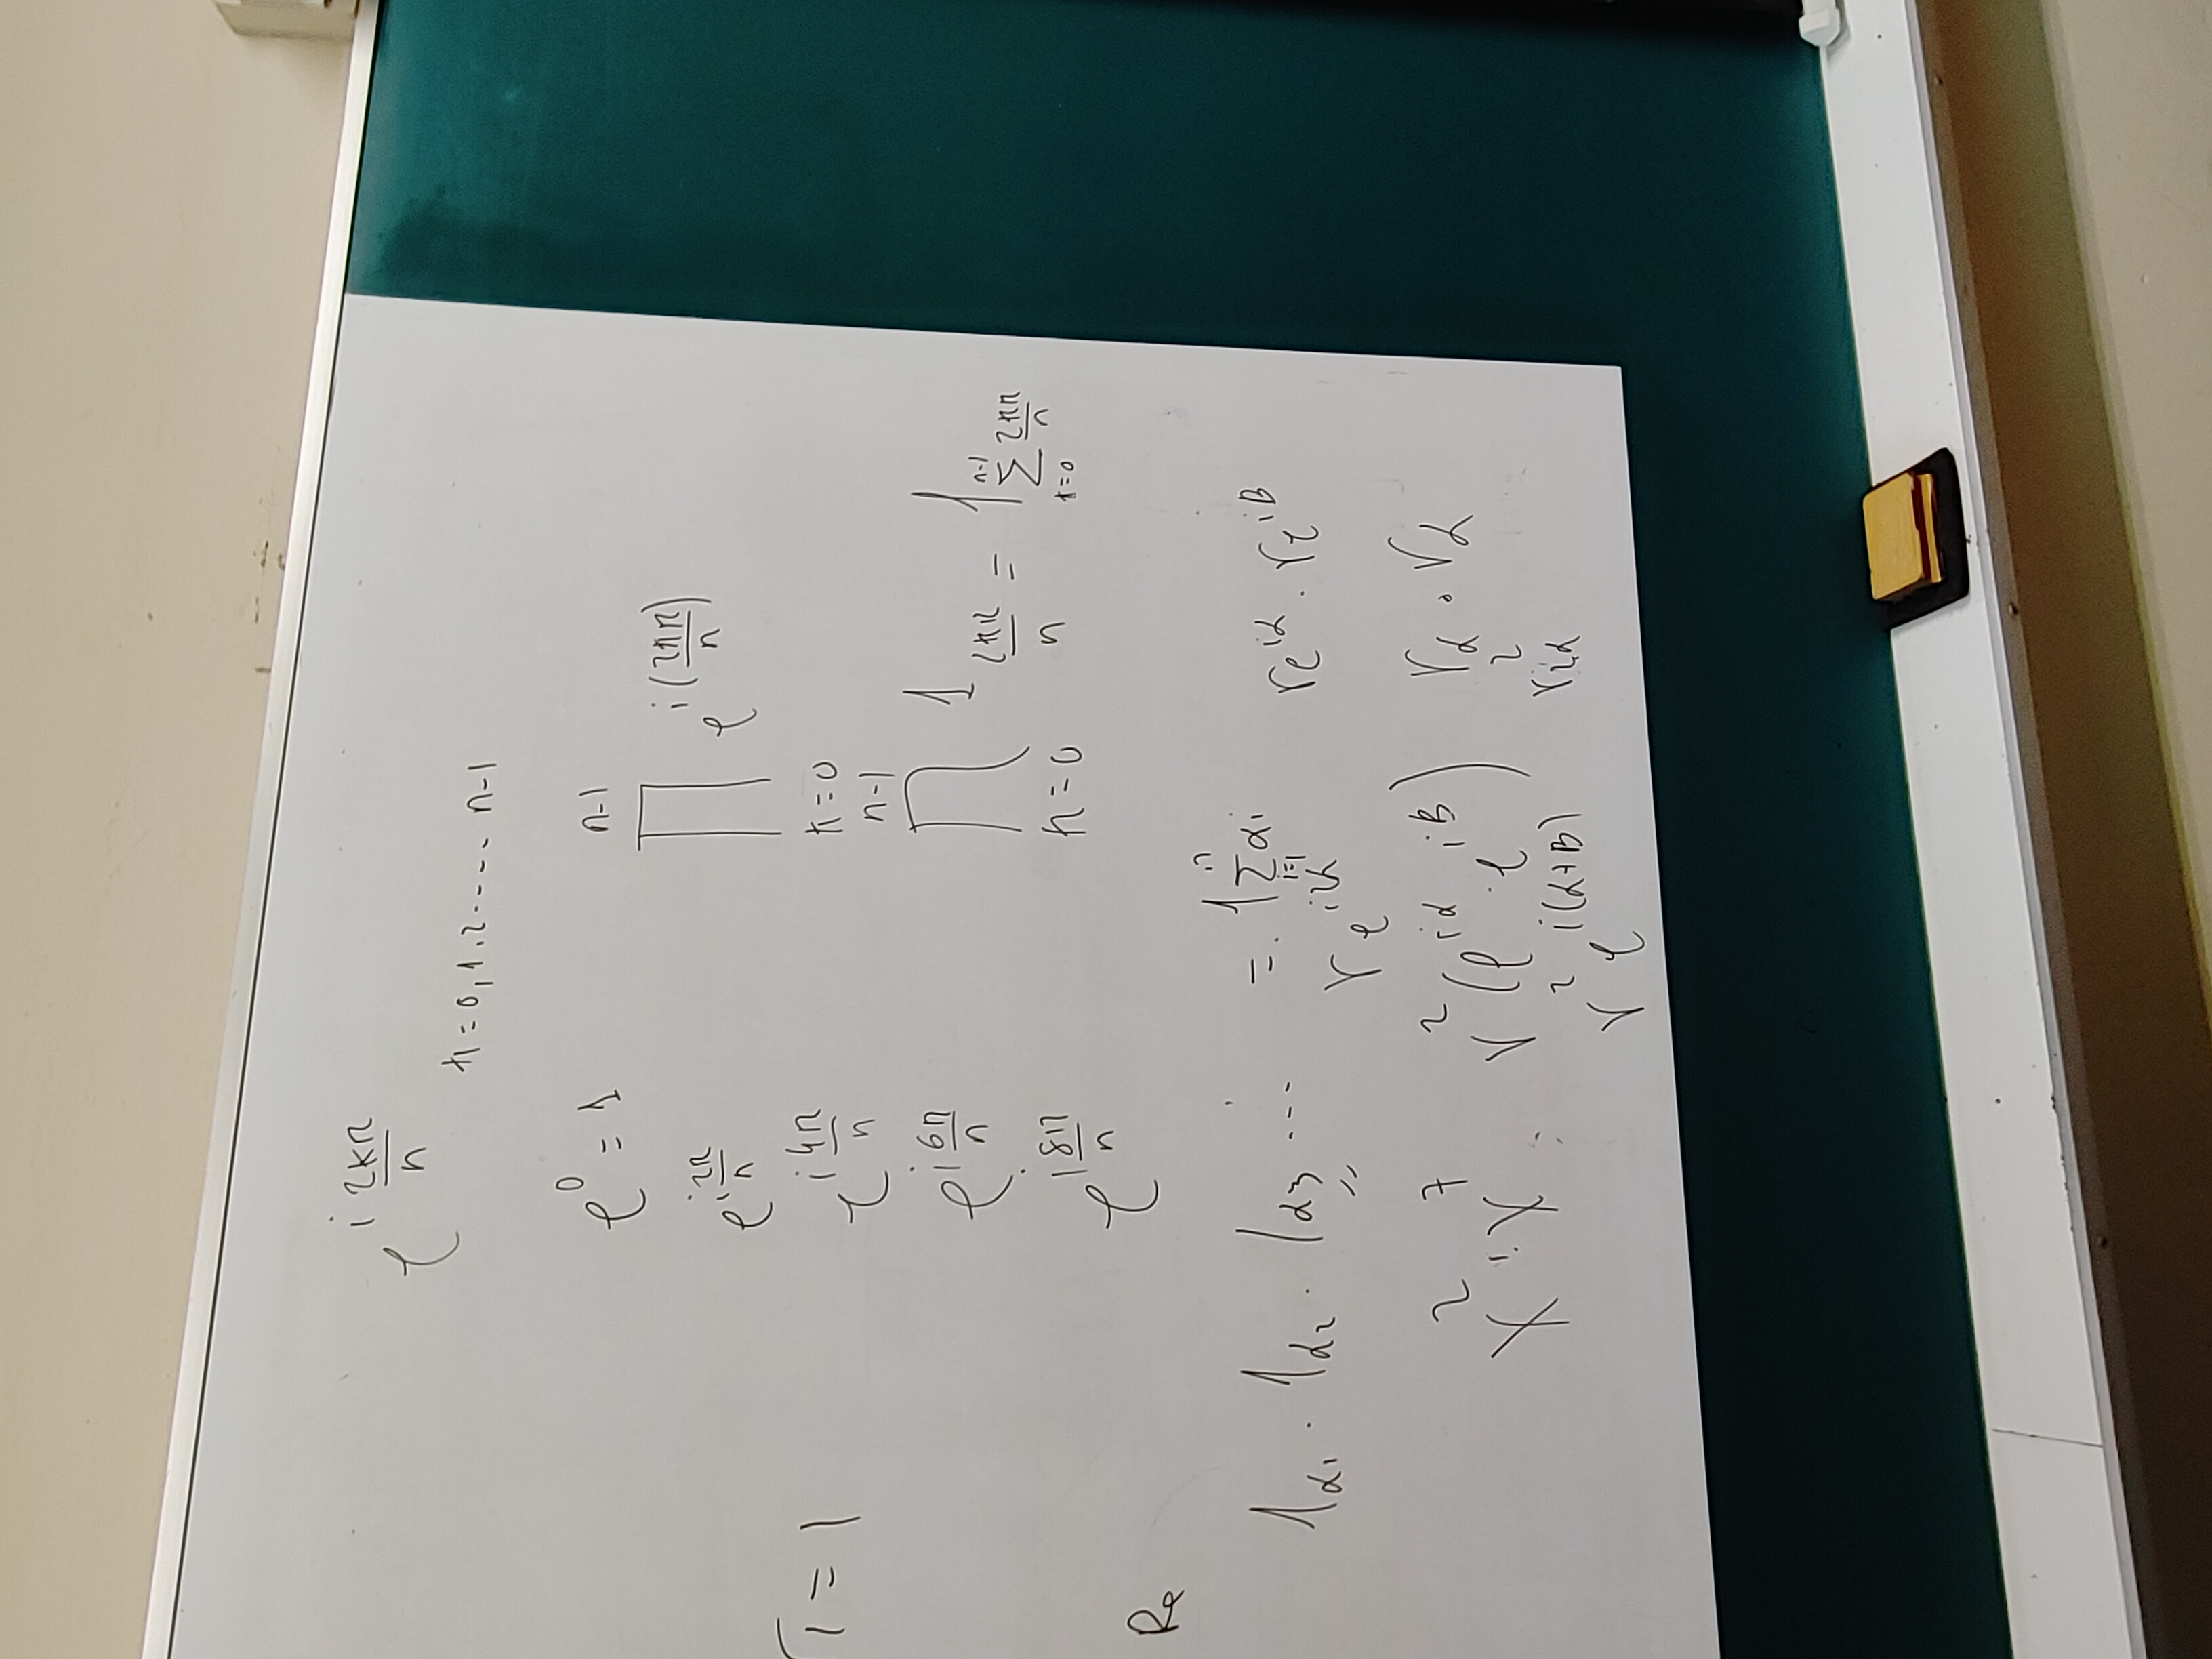 e^{i 2kπ/n}
k = 0, 1, 2 ..... n-1
e^0 = 1
e^{i 2π/n}
e^{i 4π/n}
e^{i 6π/n}
e^{i 8π/n}
n-1
∏ e^{i(2kπ/n)}
k = 0
n-1
∏ 1_{2kπ/n} = 1_{∑_{k=0}^{n-1} 2kπ/n}
k = 0
√1 = 1
Re
1_{α1} · 1_{α2} · 1_{α3} ... = 1_{∑_{i=1}^{n} αi}
r e^{i2α}
re^{iα} · re^{iβ}
x^2 · x^7
r^2 (e^{iα} · e^{iβ})
r^2 e^{i(α+β)}
r_α · r_α
r^2_{2α}